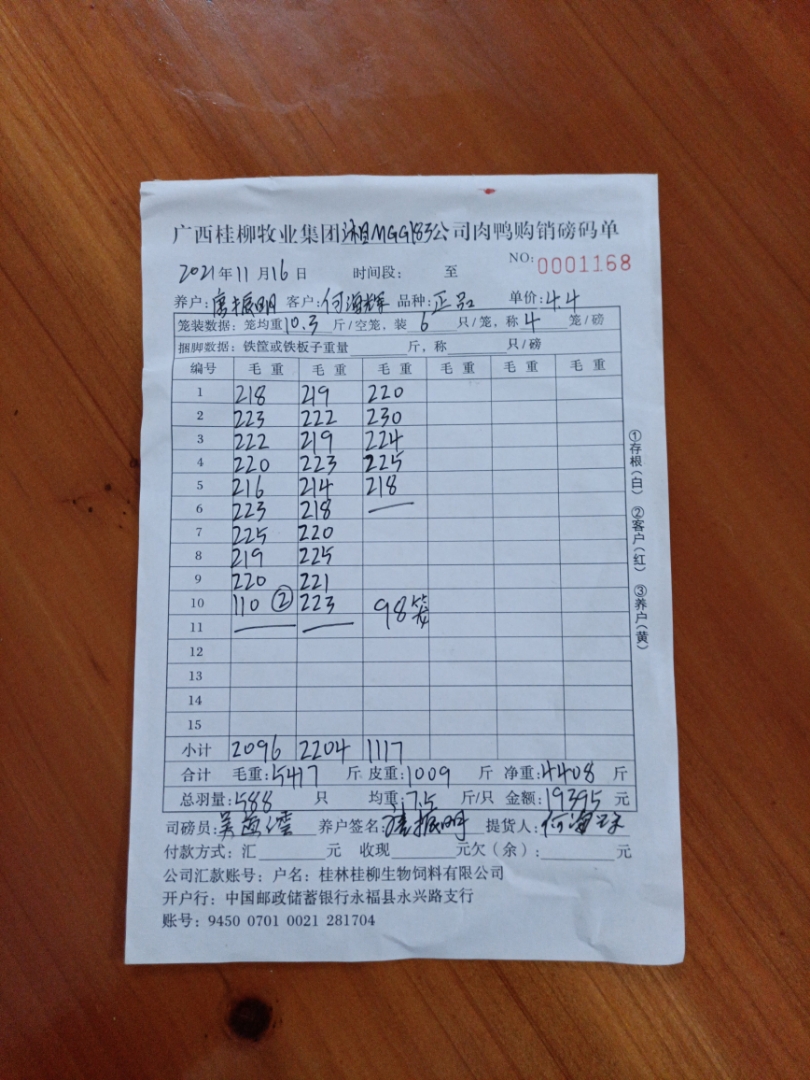 广西桂柳牧业集团湘MGG183公司肉鸭购销磅码单
NO: 0001168
2021年11月16日 时间段： 至
养户：唐振明 客户：何海辉 品种：正品 单价：4.4
笼装数据：笼均重10.3斤/空笼，装6只/笼，称4笼/磅
捆脚数据：铁筐或铁板子重量____斤，称____只/磅
编号 毛重 毛重 毛重 毛重 毛重 毛重
1 218 219 220
2 223 222 230
3 222 219 224
4 220 223 225
5 216 214 218
6 223 218 —
7 225 220
8 219 225
9 220 221
10 110 ② 223 98笼
11 — —
12
13
14
15
小计 2096 2204 1117
合计 毛重：5417斤 皮重：1009斤 净重：4408斤
总羽量：588只 均重：7.5斤/只 金额：19395元
司磅员：吴 养户签名：唐振明 提货人：何海
付款方式：汇____元 收现____元欠（余）：____元
公司汇款账号：户名：桂林桂柳生物饲料有限公司
开户行：中国邮政储蓄银行永福县永兴路支行
账号：9450 0701 0021 281704
①存根（白） ②客户（红） ③养户（黄）